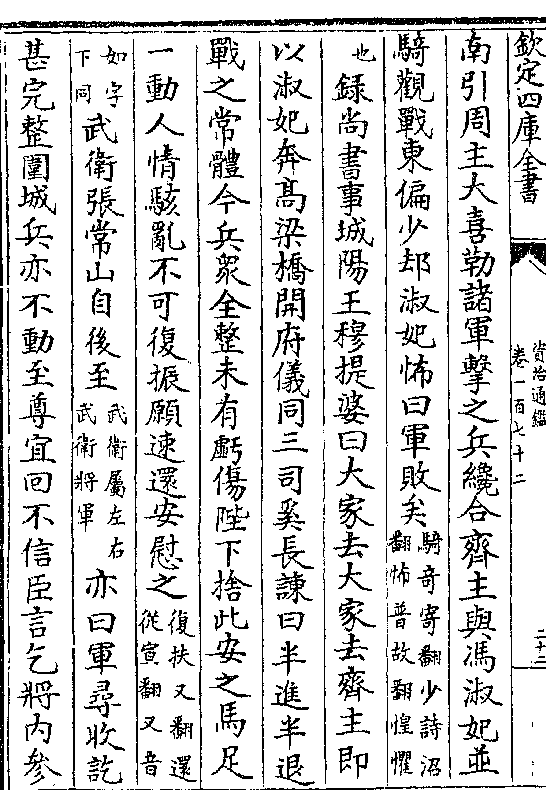 欽定四庫全書
資治通鑑
卷一百七十二
二十三
南引周主大喜勒諸軍擊之兵纔合齊主與馮淑妃並
騎觀戰東偏少却淑妃怖曰軍敗矣騎奇寄翻少詩沼翻怖普故翻惶懼
也錄尚書事城陽王穆提婆曰大家去大家去齊主即
以淑妃奔高梁橋開府儀同三司奚長諫曰半進半退
戰之常體今兵衆全整未有虧傷陛下捨此安之馬足
一動人情駭亂不可復振願速還安慰之復扶又翻還從宣翻又音
如字下同武衛張常山自後至武衛屬左右武衛將軍亦曰軍尋收訖
甚完整圍城兵亦不動至尊宜回不信臣言乞將内參